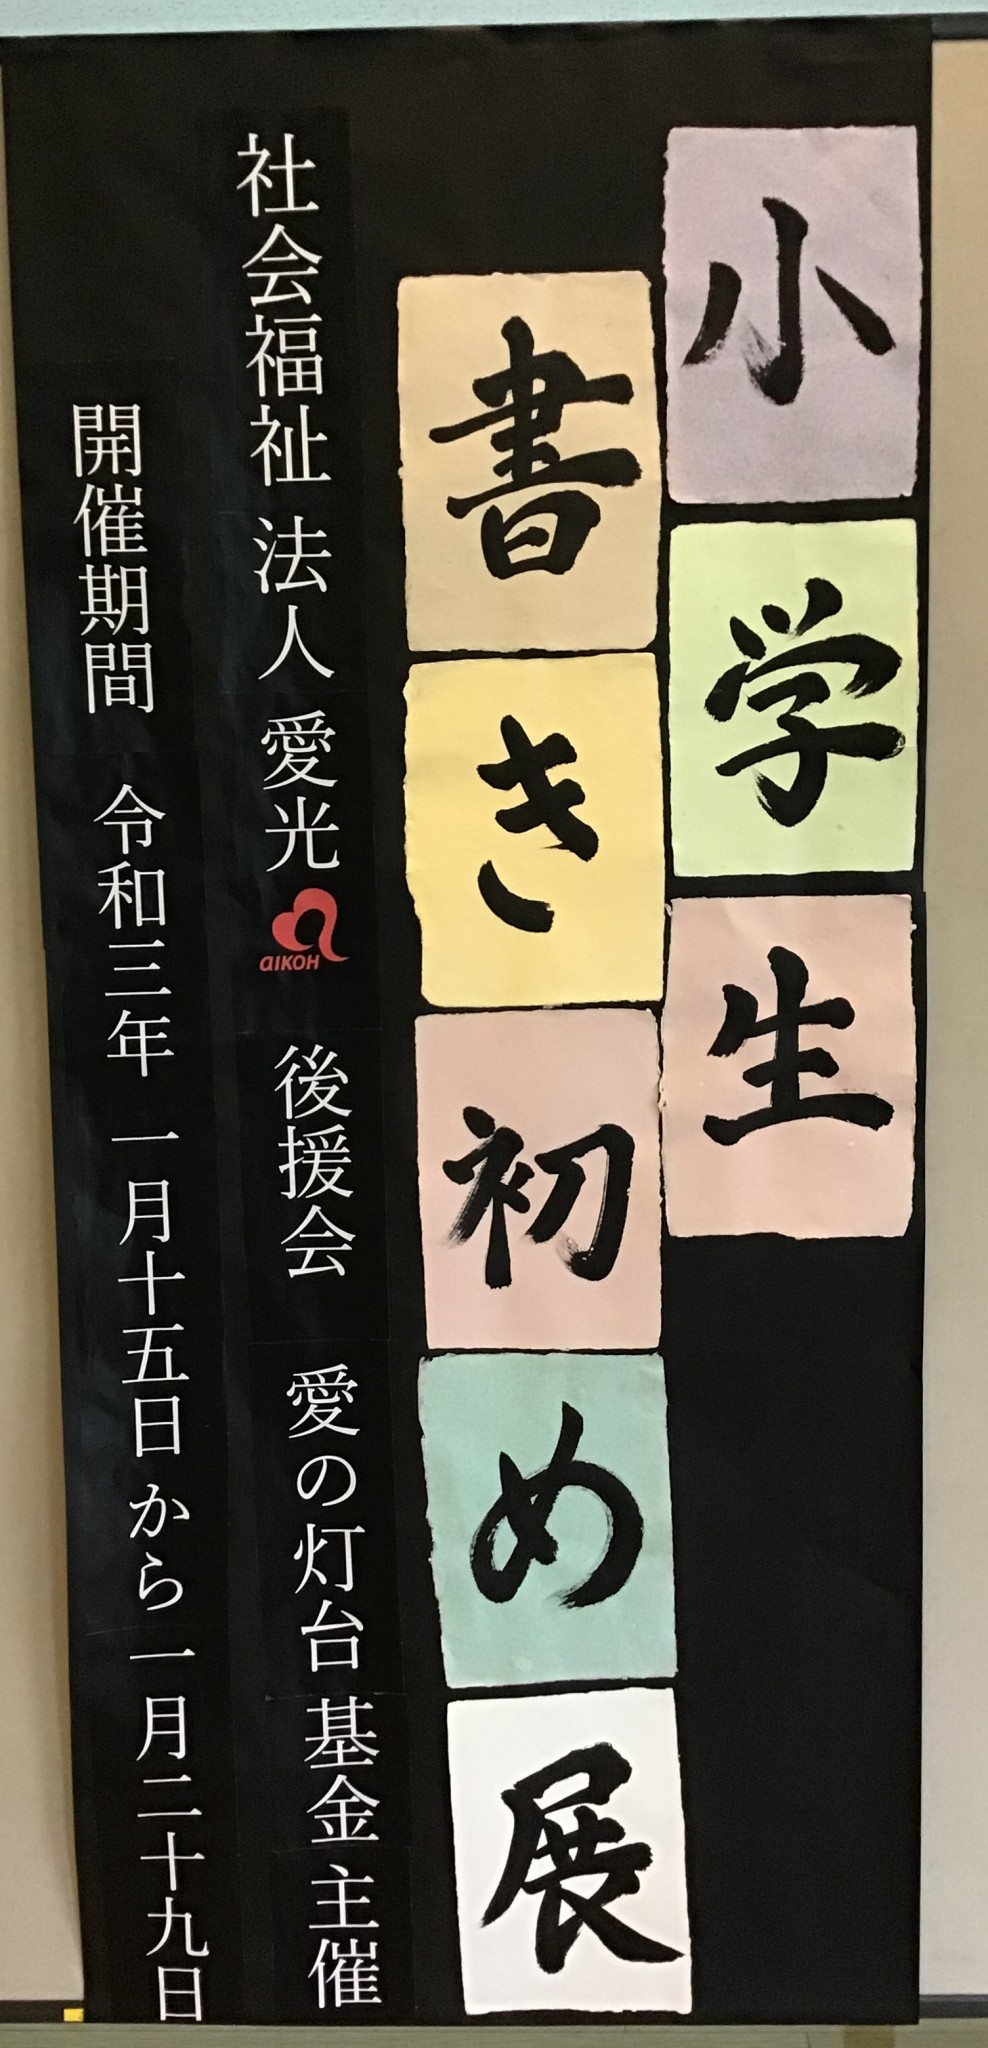 小学生
書き初め展
社会福祉法人 愛光 aIKOH 後援会 愛の灯台基金主催
開催期間 令和三年 一月十五日から一月二十九日